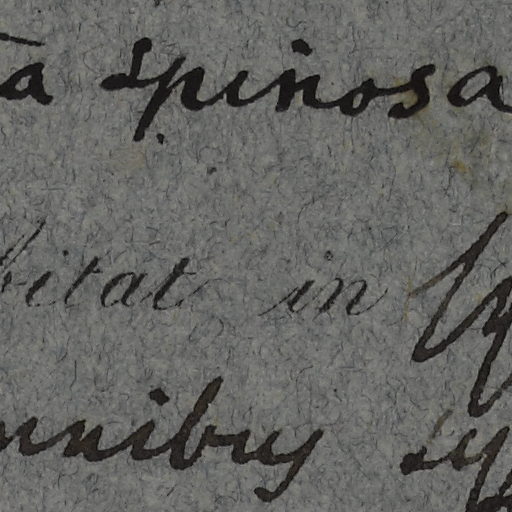 a spinosa
bitat in
nnibus